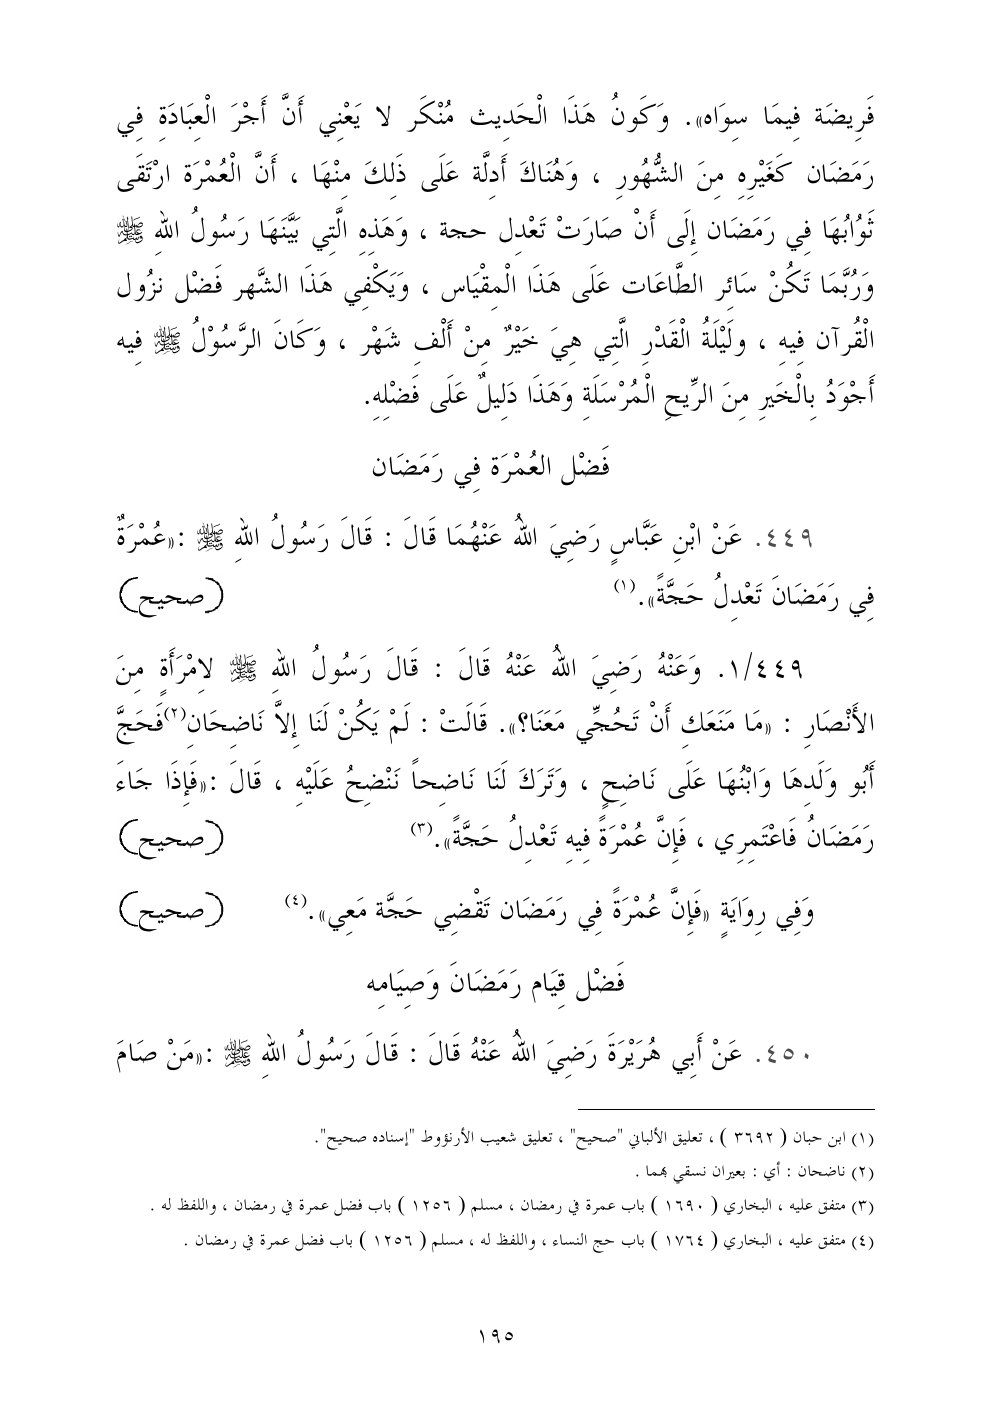 فَرِيضَة فِيمَا سِوَاه». وَكَونُ هَذَا الْحَدِيث مُنْكَر لا يَعْنِي أَنَّ أَجْرَ الْعِبَادَةِ فِي
رَمَضَان كَغَيْرِهِ مِنَ الشُّهُورِ ، وَهُنَاكَ أَدِلَّة عَلَى ذَلِكَ مِنْهَا ، أَنَّ الْعُمْرَة ارْتَقَى
ثَوُابُهَا فِي رَمَضَان إِلَى أَنْ صَارَتْ تَعْدِل حجة ، وَهَذِهِ الَّتِي بَيَّنَهَا رَسُولُ اللهِ ﷺ
وَرُبَّمَا تَكُنْ سَائِر الطَّاعَات عَلَى هَذَا الْمِقْيَاس ، وَيَكْفِي هَذَا الشَّهر فَضْل نزُول
الْقُرآن فِيهِ ، ولَيْلَةُ الْقَدْرِ الَّتِي هِيَ خَيْرٌ مِنْ أَلْفِ شَهْر ، وَكَانَ الرَّسُوْلُ ﷺ فِيه
أَجْوَدُ بِالْخَيرِ مِنَ الرِّيحِ الْمُرْسَلَةِ وَهَذَا دَلِيلٌ عَلَى فَضْلِهِ.
فَضْل العُمْرَة فِي رَمَضَان
٤٤٩. عَنْ ابْنِ عَبَّاسٍ رَضِيَ اللهُ عَنْهُمَا قَالَ : قَالَ رَسُولُ اللهِ ﷺ :«عُمْرَةٌ
فِي رَمَضَانَ تَعْدِلُ حَجَّةً».(١) (صحيح)
١/٤٤٩. وَعَنْهُ رَضِيَ اللهُ عَنْهُ قَالَ : قَالَ رَسُولُ اللهِ ﷺ لامْرَأَةٍ مِنَ
الأَنْصَارِ : «مَا مَنَعَكِ أَنْ تَحُجِّي مَعَنَا؟». قَالَتْ : لَمْ يَكُنْ لَنَا إِلاَّ نَاضِحَان(٢)فَحَجَّ
أَبُو وَلَدِهَا وَابْنُهَا عَلَى نَاضِحٍ ، وَتَرَكَ لَنَا نَاضِحاً نَنْضِحُ عَلَيْهِ ، قَالَ :«فَإِذَا جَاءَ
رَمَضَانُ فَاعْتَمِرِي ، فَإِنَّ عُمْرَةً فِيهِ تَعْدِلُ حَجَّةً».(٣) (صحيح)
وَفِي رِوَايَةٍ «فَإِنَّ عُمْرَةً فِي رَمَضَان تَقْضِي حَجَّة مَعِي».(٤) (صحيح)
فَضْل قِيَام رَمَضَانَ وَصِيَامِه
٤٥٠. عَنْ أَبِي هُرَيْرَةَ رَضِيَ اللهُ عَنْهُ قَالَ : قَالَ رَسُولُ اللهِ ﷺ :«مَنْ صَامَ
(١) ابن حبان ( ٣٦٩٢ ) ، تعليق الألباني "صحيح" ، تعليق شعيب الأرنؤوط "إسناده صحيح".
(٢) ناضحان : أي : بعيران نسقي بهما .
(٣) متفق عليه ، البخاري ( ١٦٩٠ ) باب عمرة في رمضان ، مسلم ( ١٢٥٦ ) باب فضل عمرة في رمضان ، واللفظ له .
(٤) متفق عليه ، البخاري ( ١٧٦٤ ) باب حج النساء ، واللفظ له ، مسلم ( ١٢٥٦ ) باب فضل عمرة في رمضان .
١٩٥